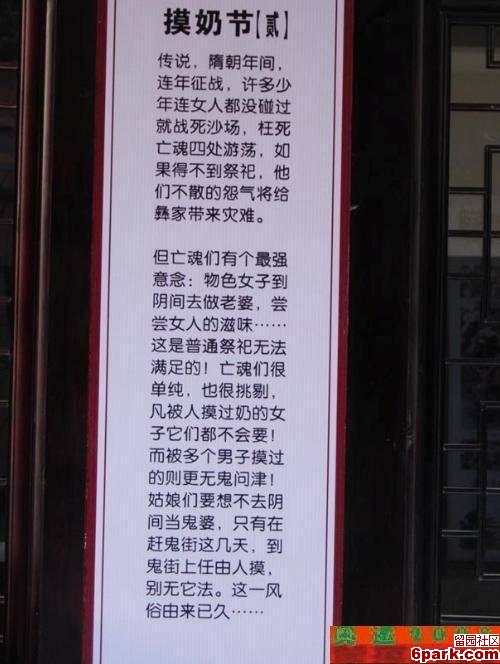 摸奶节【贰】
传说，隋朝年间，
连年征战，许多少
年连女人都没碰过
就战死沙场，枉死
亡魂四处游荡，如
果得不到祭祀，他
们不散的怨气将给
彝家带来灾难。
但亡魂们有个最强
意念：物色女子到
阴间去做老婆，尝
尝女人的滋味……
这是普通祭祀无法
满足的！亡魂们很
单纯，也很挑剔，
凡被人摸过奶的女
子它们都不会要！
而被多个男子摸过
的则更无鬼问津！
姑娘们要想不去阴
间当鬼婆，只有在
赶鬼街这几天，到
鬼街上任由人摸，
别无它法。这一风
俗由来已久……
留园社区
6park.com